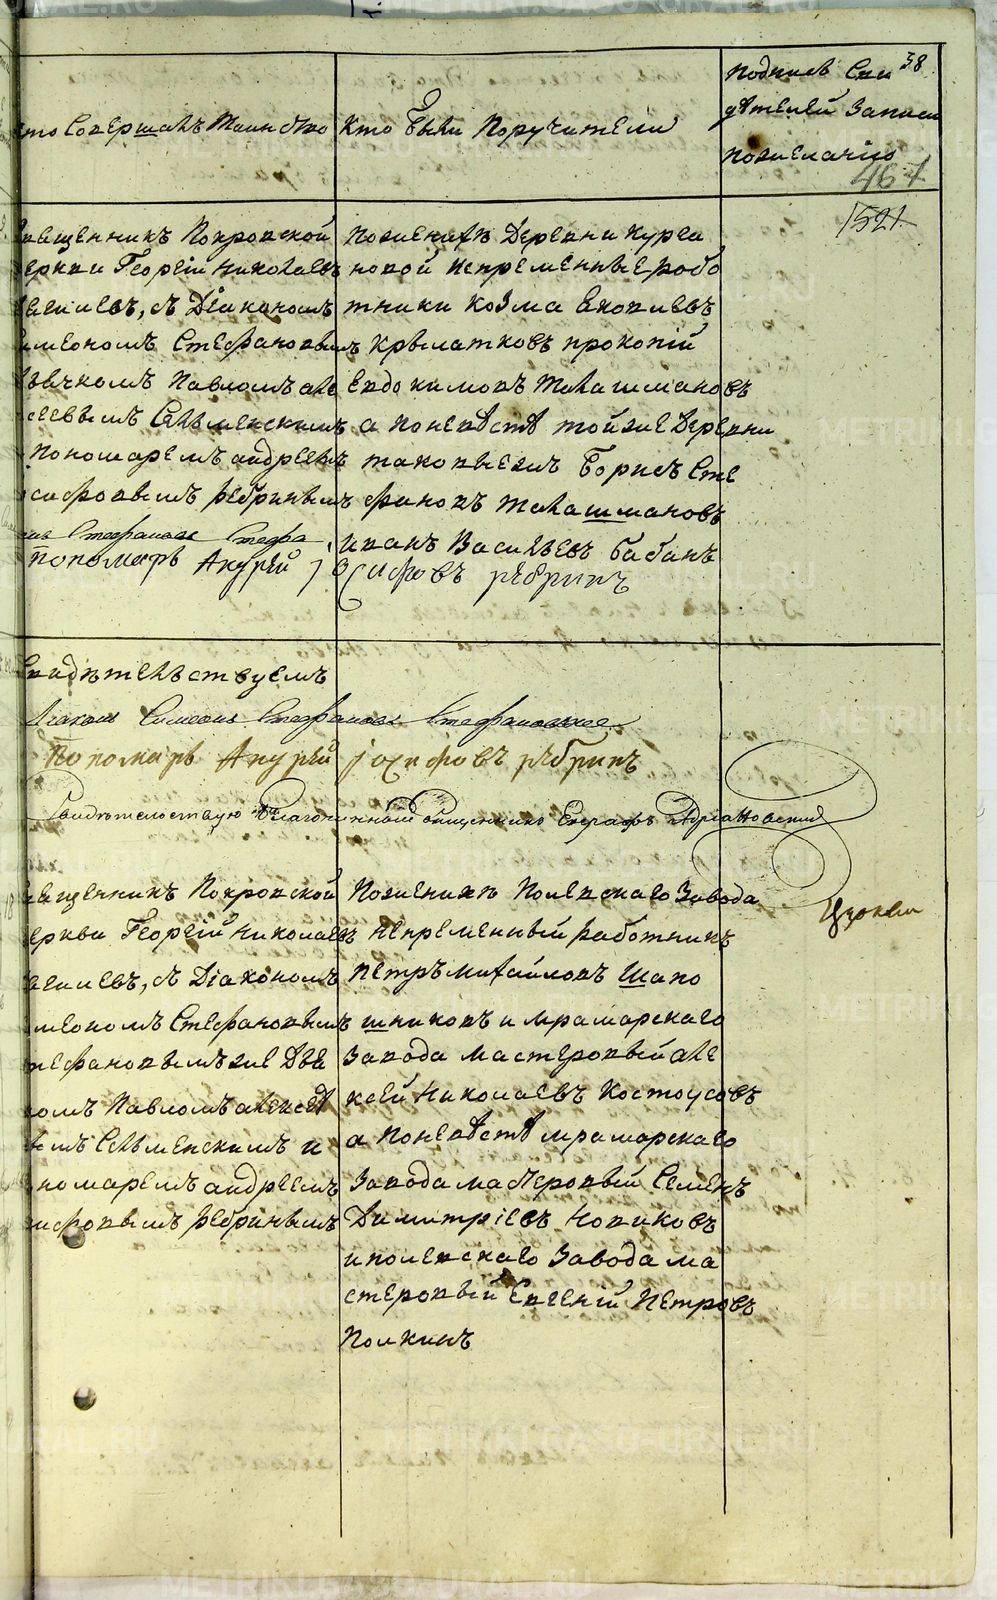 38
кто Совершалъ Таинство
Кто были Поручители
подпись Сви
дѣтелей Записи
пожеланiю
467
1521
Священникъ Покровской
Церкви Георгiй Николаевъ
съ Дiакономъ
Симеономъ Стефановымъ
Дьячкомъ Павломъ але
ксеевымъ Сельменскимъ
и пономаремъ андреемъ
iосифовымъ рѣбринымъ
Стефановъ Стефа
пономарь Андрей Iосифовъ рѣбринъ
По женихѣ Деревни Курга
новой Непременные рабо
тники Козма
Крылатковъ прокопiй
Евдокимовъ Талашмановъ
а по невѣстѣ той же Деревни
таковыежъ Борисъ Сте
фановъ Талашмановъ
иванъ Васильевъ бабинъ
Свидѣтельствуемъ
Дiаконъ Симеонъ Стефановъ Стефановскiй
Пономарь Андрей Iосифовъ рѣбринъ
Свидѣтельствую Благочинный священникъ Евграфъ Адрiановскiй
Священникъ Покровской
Церкви Георгiй Николаевъ
съ Дiакономъ
Симеономъ Стефановымъ
Стефановымъ же Дья
комъ Павломъ алексѣе
вымъ Сельменскимъ и
пономаремъ андреемъ
iосифовымъ рѣбринымъ
По женихѣ Полевскаго Завода
непременный работникъ
Петръ михайловъ Шапо
шниковъ и мраморскаго
Завода мастеровый але
ксей Николаевъ Костоусовъ
а по невѣстѣ мраморскаго
Завода мастеровый Семенъ
Димитрiевъ Новиковъ
и полевскаго Завода ма
стеровый Евгенiй Петровъ
Полкинъ
Церкви